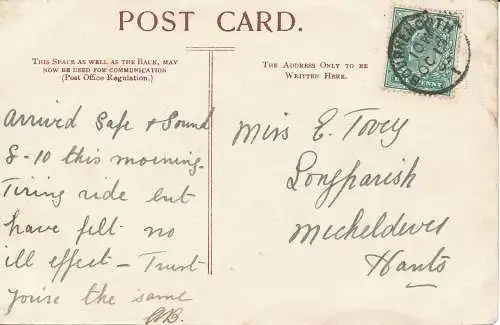 POST CARD.
THIS SPACE AS WELL AS THE BACK, MAY
NOW BE USED FOR COMMUNICATION
(Post Office Regulation.)
THE ADDRESS ONLY TO BE
WRITTEN HERE.
Arrived Safe & Sound
8-10 this morning.
Tiring ride but
have felt no
ill effect – Trust
you're the same
AB.
Miss E. Tovey
Longparish
Micheldever
Hants
BOURNEMOUTH
OC 15
PENNY